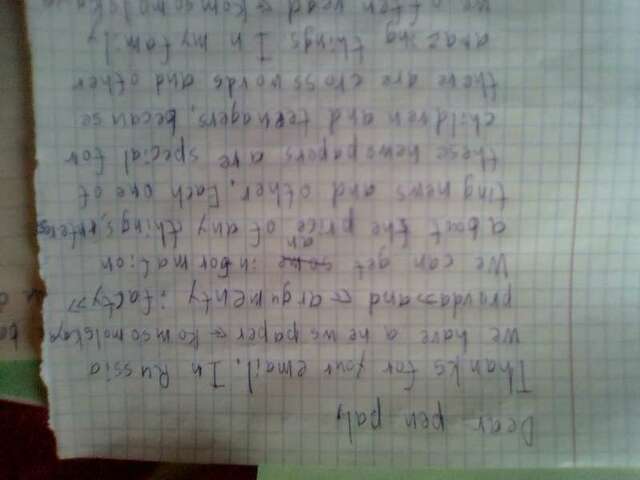 Dear pen pal,
Thanks for your email. In Russia
we have a news paper « Komsomolskaya
pravda» and « argumenty i facty»
We can get information
about the price an of any things, interes
ting news and other. Each one of
these newspapers are special for
children and teenagers, because
there are crosswords and other
amazing things In my family
we often read « Komsomolska